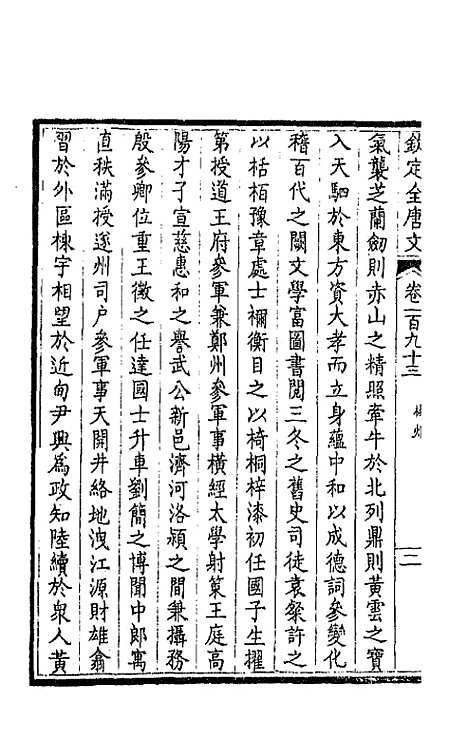 欽定全唐文 卷一百九十三 楊炯 二
氣襲芝蘭劒則赤山之精照牽牛於北列鼎則黃雲之寶
入天駟於東方資大孝而立身蘊中和以成德詞參變化
稽百代之闕文學富圖書閱三冬之舊史司徒袁粲許之
以栝栢豫章處士禰衡目之以椅桐梓漆初任國子生擢
第授道王府參軍兼鄭州參軍事橫經太學射策王庭高
陽才子宣慈惠和之譽武公新邑濟河洛潁之間兼攝務
殷參卿位重王徵之任達國士升車劉簡之博聞中郎寓
直秩滿授遂州司戶參軍事天開井絡地洩江源財雄翕
習於外區棟宇相望於近甸尹興爲政知陸續於衆人黃